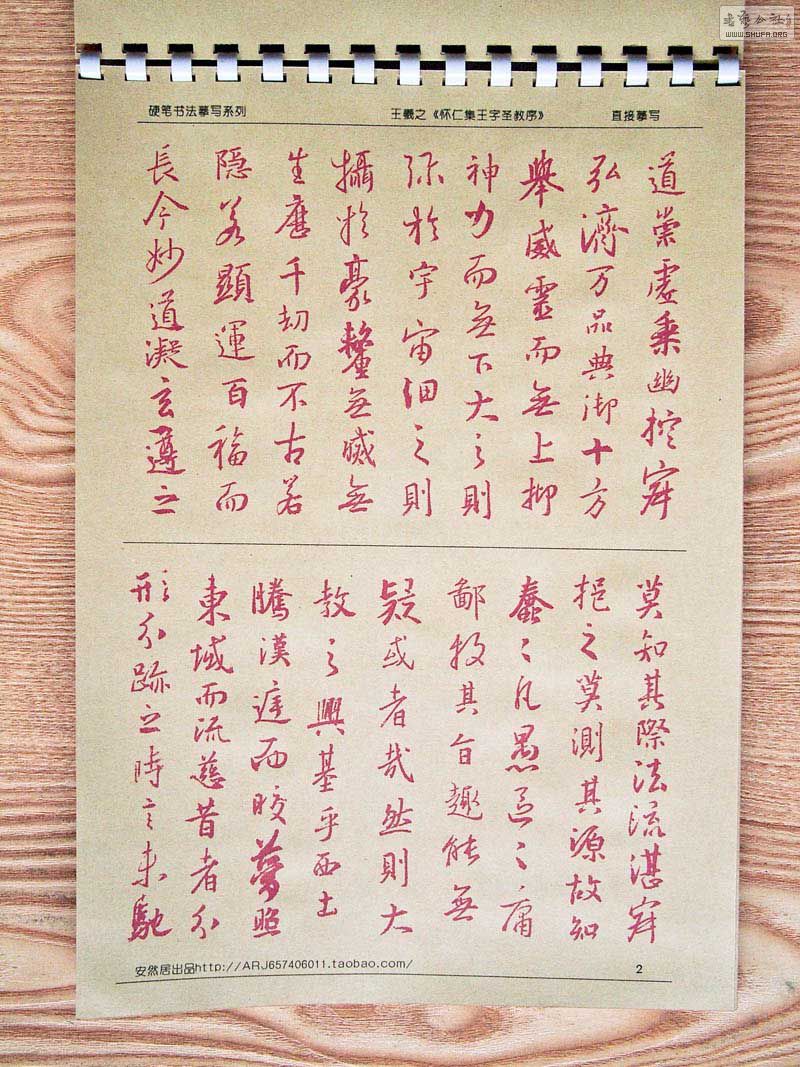 書法公社
WWW.SHUFA.ORG
硬笔书法摹写系列 王羲之《怀仁集王字圣教序》 直接摹写
道崇虚乘幽控寂
弘濟万品典御十方
舉威靈而無上抑
神力而無下大之則
弥於宇宙細之則
攝於豪釐無滅無
生歷千劫而不古若
隱若顯運百福而
長今妙道凝玄遵之
莫知其際法流湛寂
挹之莫測其源故知
蠢〻凡愚區〻庸
鄙投其旨趣能無
疑或者哉然則大
教之興基乎西土
騰漢庭而皎夢照
東域而流慈昔者分
形分跡之時言未馳
安然居出品http://ARJ657406011.taobao.com/ 2